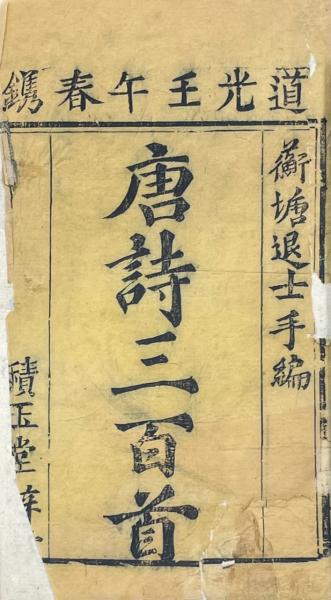 道光壬午春鐫
蘅塘退士手編
唐詩三百首
積玉堂梓